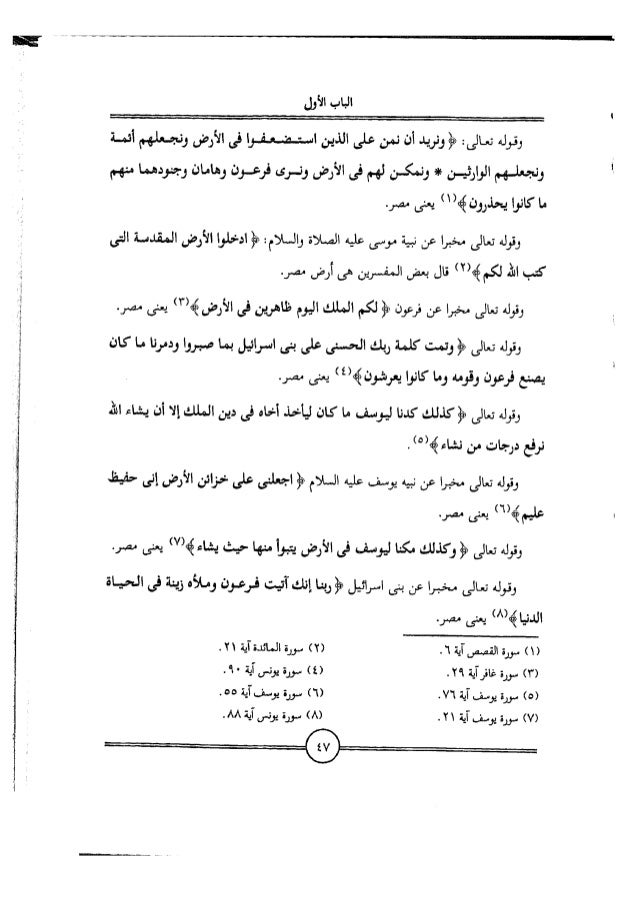 الباب الأول
وقوله تعالى: ﴿ ونريد أن نمن على الذين استضعفوا فى الأرض ونجعلهم أئمة
ونجعلهم الوارثين * ونمكن لهم فى الأرض ونرى فرعون وهامان وجنودهما منهم
ما كانوا يحذرون ﴾(١) يعنى مصر.
وقوله تعالى مخبرا عن نبية موسى عليه الصلاة والسلام: ﴿ ادخلوا الأرض المقدسة التى
كتب الله لكم ﴾(٢) قال بعض المفسرين هى أرض مصر.
وقوله تعالى مخبرا عن فرعون ﴿ لكم الملك اليوم ظاهرين فى الأرض ﴾(٣) يعنى مصر.
وقوله تعالى ﴿ وتمت كلمة ربك الحسنى على بنى اسرائيل بما صبروا ودمرنا ما كان
يصنع فرعون وقومه وما كانوا يعرشون ﴾(٤) يعنى مصر.
وقوله تعالى ﴿ كذلك كدنا ليوسف ما كان ليأخذ أخاه فى دين الملك إلا أن يشاء الله
نرفع درجات من نشاء ﴾(٥).
وقوله تعالى مخبرا عن نبيه يوسف عليه السلام ﴿ اجعلنى على خزائن الأرض إنى حفيظ
عليم ﴾(٦) يعنى مصر.
وقوله تعالى ﴿ وكذلك مكنا ليوسف فى الأرض يتبوأ منها حيث يشاء ﴾(٧) يعنى مصر.
وقوله تعالى مخبرا عن بنى اسرائيل ﴿ ربنا إنك آتيت فرعون وملأه زينة فى الحياة
الدنيا ﴾(٨) يعنى مصر.
(١) سورة القصص آية ٦. (٢) سورة المائدة آية ٢١.
(٣) سورة غافر آية ٢٩. (٤) سورة يونس آية ٩٠.
(٥) سورة يوسف آية ٧٦. (٦) سورة يوسف آية ٥٥.
(٧) سورة يوسف آية ٢١. (٨) سورة يونس آية ٨٨.
٤٧